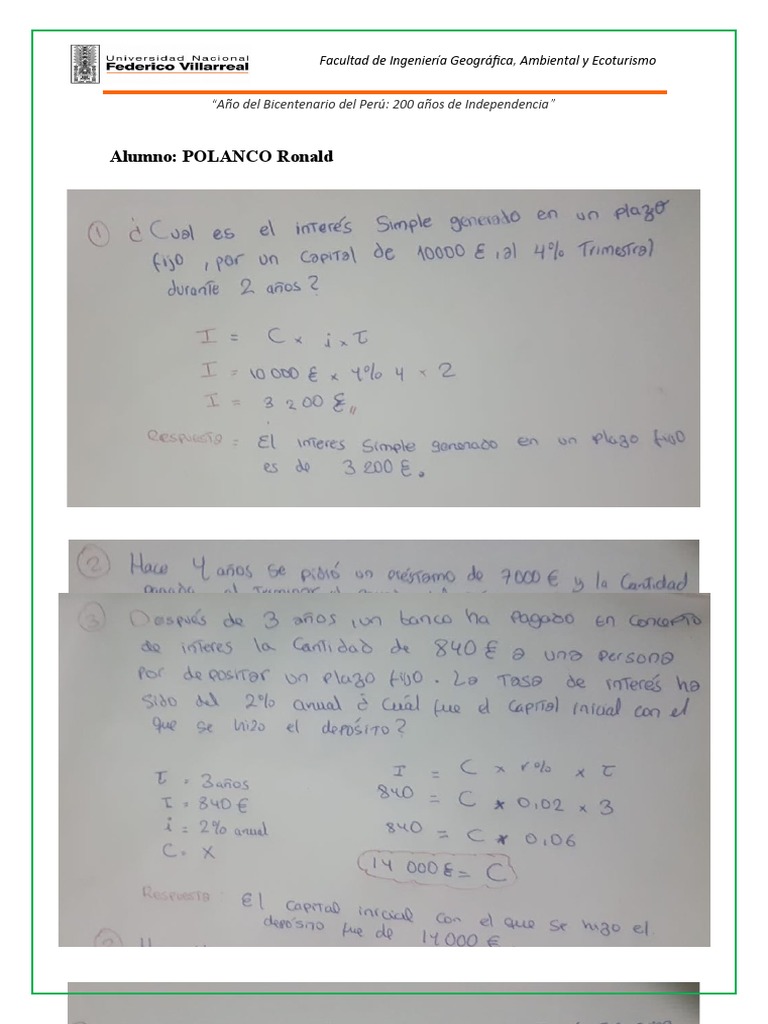 Universidad Nacional
Federico Villarreal
Facultad de Ingeniería Geográfica, Ambiental y Ecoturismo
“Año del Bicentenario del Perú: 200 años de Independencia”
Alumno: POLANCO Ronald
① ¿Cual es el interés Simple generado en un plazo
fijo, por un capital de 10000 €, al 4% Trimestral
durante 2 años?
I = C x i x t
I = 10 000 € x 4% 4 x 2
I = 3 200 €,,
Respuesta: El interes simple generado en un plazo fijo
es de 3 200 €.
② Hace 4 años se pidió un préstamo de 7000 € y la cantidad
③ Después de 3 años, un banco ha pagado en concepto
de interes la cantidad de 840 € a una persona
por depositar un plazo fijo. La tasa de interés ha
sido del 2% anual ¿Cuál fue el capital inicial con el
que se hizo el depósito?
t = 3 años
I = 840 €
i = 2% anual
C = x
I = C x r% x t
840 = C x 0,02 x 3
840 = C x 0,06
14 000 € = C
Respuesta: El capital inicial con el que se hizo el
depósito fue de 14 000 €